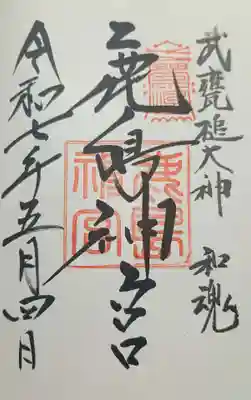 武甕槌大神 和魂
鹿嶋神宮
鹿島神宮
令和七年五月四日